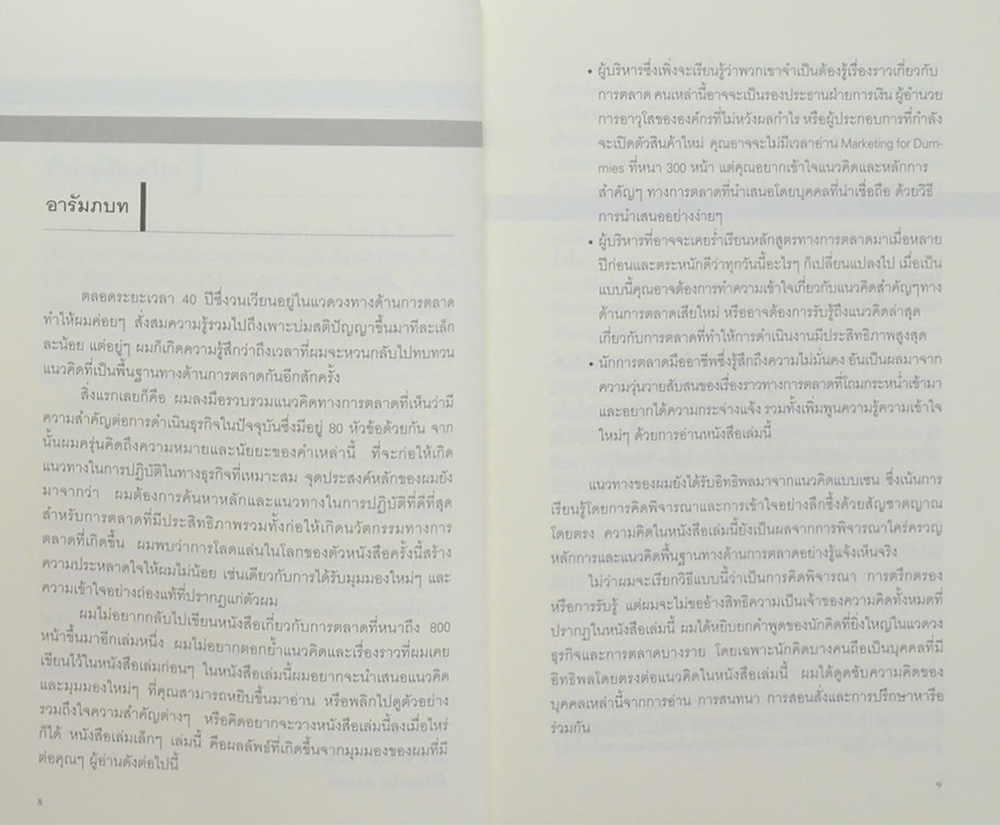 อารัมภบท
ตลอดระยะเวลา 40 ปีซึ่งวนเวียนอยู่ในแวดวงทางด้านการตลาด
ทำให้ผมค่อยๆ สั่งสมความรู้รวมไปถึงเพาะบ่มสติปัญญาขึ้นมาทีละเล็ก
ละน้อย แต่อยู่ๆ ผมก็เกิดความรู้สึกว่าถึงเวลาที่ผมจะหวนกลับไปทบทวน
แนวคิดที่เป็นพื้นฐานทางด้านการตลาดกันอีกสักครั้ง
สิ่งแรกเลยก็คือ ผมลงมือรวบรวมแนวคิดทางการตลาดที่เห็นว่ามี
ความสำคัญต่อการดำเนินธุรกิจในปัจจุบันซึ่งมีอยู่ 80 หัวข้อด้วยกัน จาก
นั้นผมครุ่นคิดถึงความหมายและนัยยะของคำเหล่านี้ ที่จะก่อให้เกิด
แนวทางในการปฏิบัติในทางธุรกิจที่เหมาะสม จุดประสงค์หลักของผมยัง
มาจากว่า ผมต้องการค้นหาหลักและแนวทางในการปฏิบัติที่ดีที่สุด
สำหรับการตลาดที่มีประสิทธิภาพรวมทั้งก่อให้เกิดนวัตกรรมทางการ
ตลาดที่เกิดขึ้น ผมพบว่าการโลดแล่นในโลกของตัวหนังสือครั้งนี้สร้าง
ความประหลาดใจให้ผมไม่น้อย เช่นเดียวกับการได้รับมุมมองใหม่ๆ และ
ความเข้าใจอย่างถ่องแท้ที่ปรากฏแก่ตัวผม
ผมไม่อยากกลับไปเขียนหนังสือเกี่ยวกับการตลาดที่หนาถึง 800
หน้าขึ้นมาอีกเล่มหนึ่ง ผมไม่อยากตอกย้ำแนวคิดและเรื่องราวที่ผมเคย
เขียนไว้ในหนังสือเล่มก่อนๆ ในหนังสือเล่มนี้ผมอยากจะนำเสนอแนวคิด
และมุมมองใหม่ๆ ที่คุณสามารถหยิบขึ้นมาอ่าน หรือพลิกไปดูตัวอย่าง
รวมถึงใจความสำคัญต่างๆ หรือคิดอยากจะวางหนังสือเล่มนี้ลงเมื่อไหร่
ก็ได้ หนังสือเล่มเล็กๆ เล่มนี้ คือผลลัพธ์ที่เกิดขึ้นจากมุมมองของผมที่มี
ต่อคุณๆ ผู้อ่านดังต่อไปนี้
8
• ผู้บริหารซึ่งเพิ่งจะเรียนรู้ว่าพวกเขาจำเป็นต้องรู้เรื่องราวเกี่ยวกับ
การตลาด คนเหล่านี้อาจจะเป็นรองประธานฝ่ายการเงิน ผู้อำนวย
การอาวุโสขององค์กรที่ไม่หวังผลกำไร หรือผู้ประกอบการที่กำลัง
จะเปิดตัวสินค้าใหม่ คุณอาจจะไม่มีเวลาอ่าน Marketing for Dum-
mies ที่หนา 300 หน้า แต่คุณอยากเข้าใจแนวคิดและหลักการ
สำคัญๆ ทางการตลาดที่นำเสนอโดยบุคคลที่น่าเชื่อถือ ด้วยวิธี
การนำเสนออย่างง่ายๆ
• ผู้บริหารที่อาจจะเคยร่ำเรียนหลักสูตรทางการตลาดมาเมื่อหลาย
ปีก่อนและตระหนักดีว่าทุกวันนี้อะไรๆ ก็เปลี่ยนแปลงไป เมื่อเป็น
แบบนี้คุณอาจต้องการทำความเข้าใจเกี่ยวกับแนวคิดสำคัญๆทาง
ด้านการตลาดเสียใหม่ หรืออาจต้องการรับรู้ถึงแนวคิดล่าสุด
เกี่ยวกับการตลาดที่ทำให้การดำเนินงานมีประสิทธิภาพสูงสุด
• นักการตลาดมืออาชีพซึ่งรู้สึกถึงความไม่มั่นคง อันเป็นผลมาจาก
ความวุ่นวายสับสนของเรื่องราวทางการตลาดที่โถมกระหน่ำเข้ามา
และอยากได้ความกระจ่างแจ้ง รวมทั้งเพิ่มพูนความรู้ความเข้าใจ
ใหม่ๆ ด้วยการอ่านหนังสือเล่มนี้
แนวทางของผมยังได้รับอิทธิพลมาจากแนวคิดแบบเซน ซึ่งเน้นการ
เรียนรู้โดยการคิดพิจารณาและการเข้าใจอย่างลึกซึ้งด้วยสัญชาตญาณ
โดยตรง ความคิดในหนังสือเล่มนี้ยังเป็นผลจากการพิจารณาใคร่ครวญ
หลักการและแนวคิดพื้นฐานทางด้านการตลาดอย่างรู้แจ้งเห็นจริง
ไม่ว่าผมจะเรียกวิธีแบบนี้ว่าเป็นการคิดพิจารณา การตรึกตรอง
หรือการรับรู้ แต่ผมจะไม่ขออ้างสิทธิความเป็นเจ้าของความคิดทั้งหมดที่
ปรากฏในหนังสือเล่มนี้ ผมได้หยิบยกคำพูดของนักคิดที่ยิ่งใหญ่ในแวดวง
ธุรกิจและการตลาดบางราย โดยเฉพาะนักคิดบางคนถือเป็นบุคคลที่มี
อิทธิพลโดยตรงต่อแนวคิดในหนังสือเล่มนี้ ผมได้ดูดซับความคิดของ
บุคคลเหล่านี้จากการอ่าน การสนทนา การสอนสั่งและการปรึกษาหารือ
ร่วมกัน
9